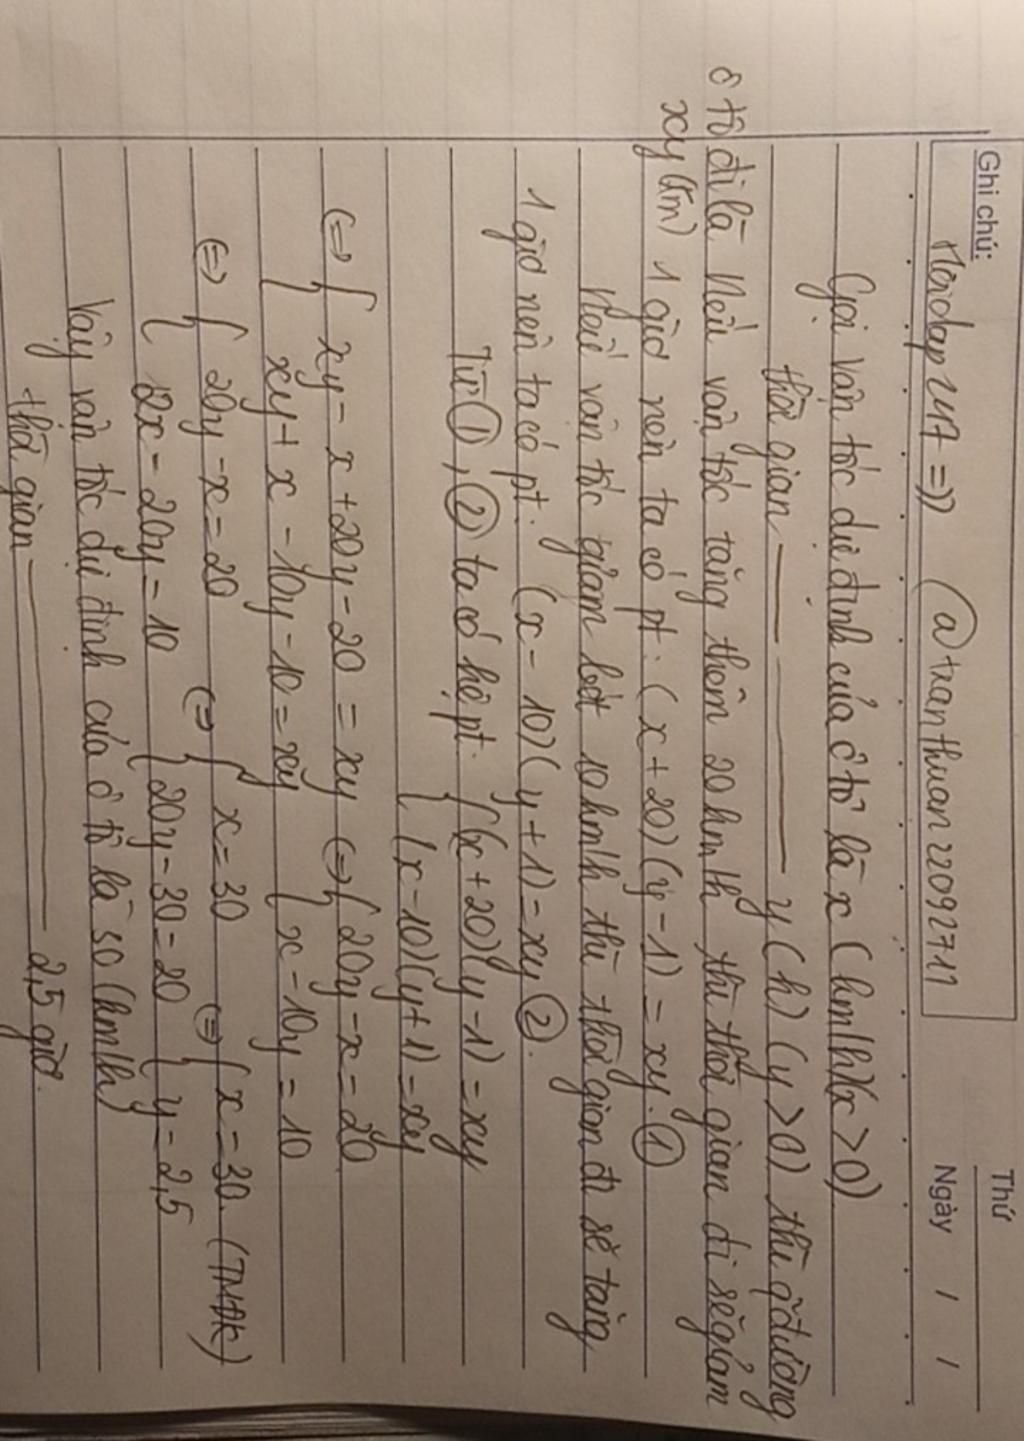 Ghi chú:
Thứ
Ngày / /
Hoidap247 =)) @tranthuan22092711
Gọi vận tốc dự định của ô tô là x (km/h)(x > 0)
thời gian ——— ——— y (h) (y > 0) thì qđường
ô tô đi là Nếu vận tốc tăng thêm 20 km/h thì thời gian đi sẽ giảm
xy (km) 1 giờ nên ta có pt: (x + 20)(y - 1) = xy. ①
Nếu vận tốc giảm bớt 10 km/h thì thời gian đi sẽ tăng
1 giờ nên ta có pt: (x - 10)(y + 1) = xy ②.
Từ ①, ② ta có hệ pt: { (x + 20)(y - 1) = xy
(x - 10)(y + 1) = xy
<=> { xy - x + 20y - 20 = xy <=> { 20y - x = 20
xy + x - 10y - 10 = xy { x - 10y = 10
<=> { 20y - x = 20 <=> { x = 30 <=> { x = 30. (TMĐK)
{ 2x - 20y = 10 { 20y - 30 = 20 { y = 2,5
Vậy vận tốc dự định của ô tô là 30 (km/h)
thời gian ——— ——— 2,5 giờ.